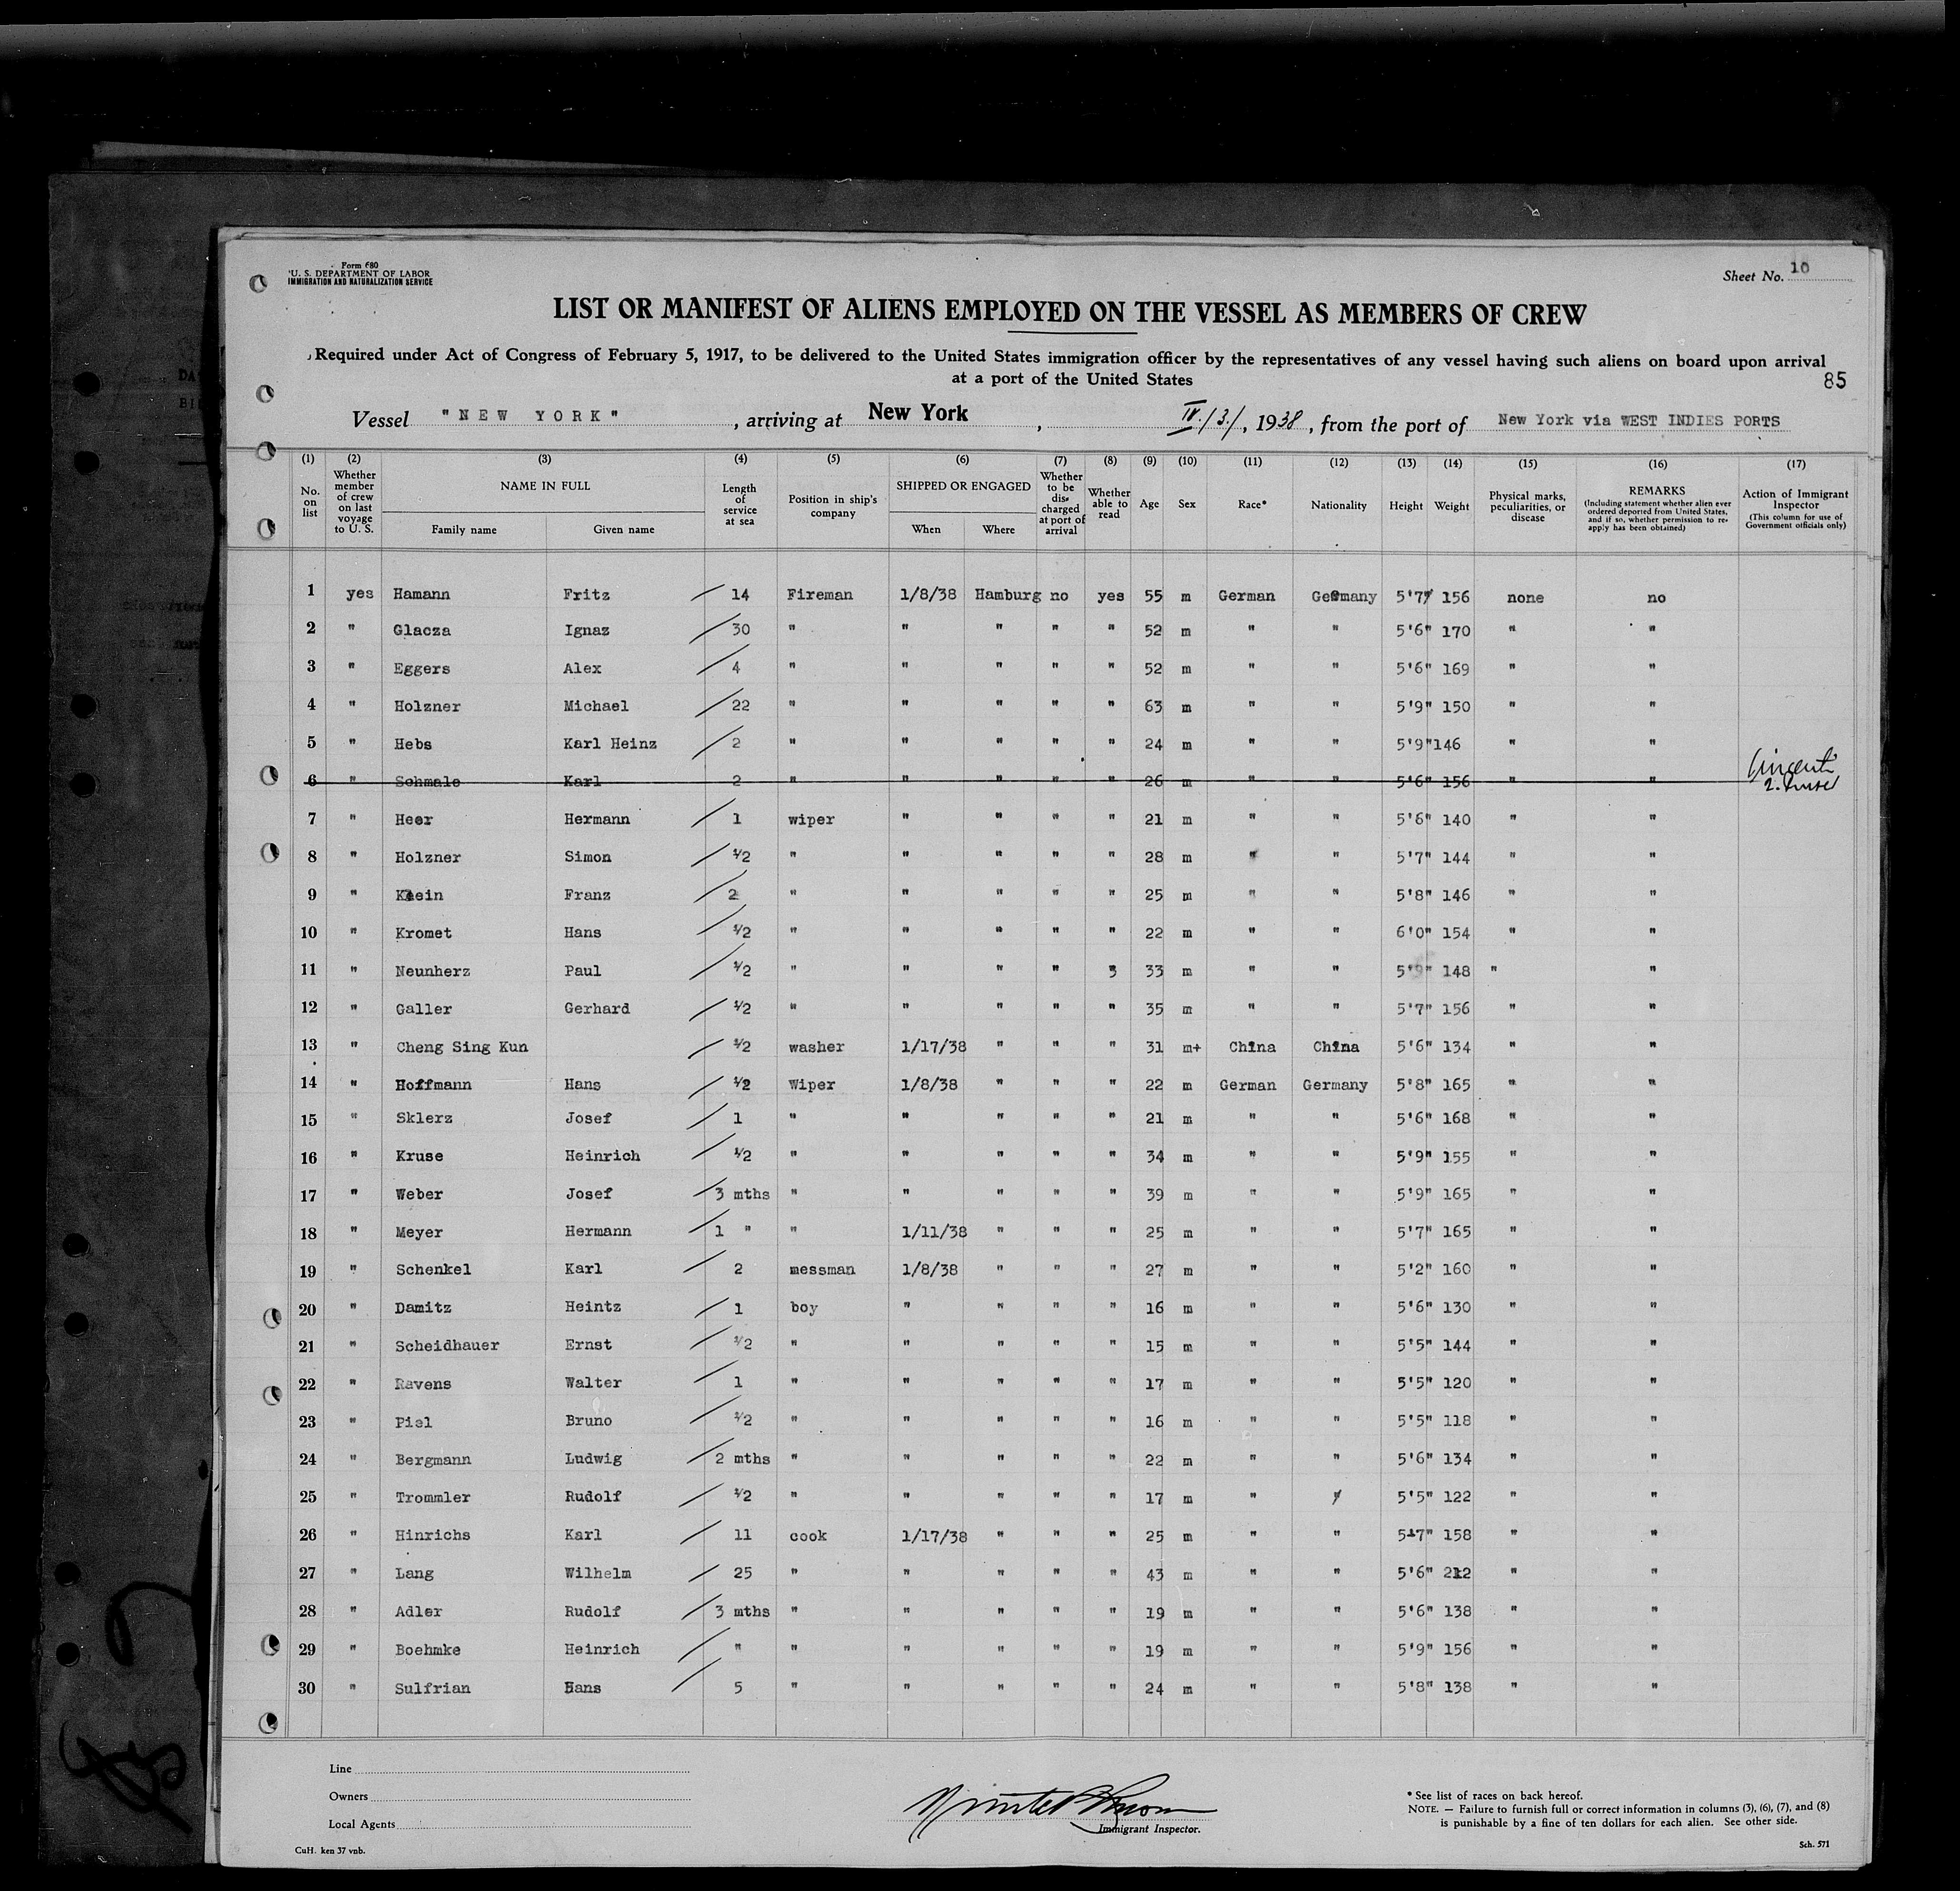 Form 680
U. S. DEPARTMENT OF LABOR
IMMIGRATION AND NATURALIZATION SERVICE
Sheet No. 10
LIST OR MANIFEST OF ALIENS EMPLOYED ON THE VESSEL AS MEMBERS OF CREW
Required under Act of Congress of February 5, 1917, to be delivered to the United States immigration officer by the representatives of any vessel having such aliens on board upon arrival
at a port of the United States
85
Vessel "NEW YORK", arriving at New York, IV./3./, 1938, from the port of New York via WEST INDIES PORTS
(1) (2) (3) (4) (5) (6) (7) (8) (9) (10) (11) (12) (13) (14) (15) (16) (17)
No. on list
Whether member of crew on last voyage to U. S.
NAME IN FULL
Family name
Given name
Length of service at sea
Position in ship's company
SHIPPED OR ENGAGED
When
Where
Whether to be discharged at port of arrival
Whether able to read
Age
Sex
Race*
Nationality
Height
Weight
Physical marks, peculiarities, or disease
REMARKS
(Including statement whether alien ever ordered deported from United States, and if so, whether permission to re-apply has been obtained)
Action of Immigrant Inspector
(This column for use of Government officials only)
1 yes Hamann Fritz 14 Fireman 1/8/38 Hamburg no yes 55 m German Germany 5'7" 156 none no
2 " Glacza Ignaz 30 " " " " " 52 m " " 5'6" 170 " "
3 " Eggers Alex 4 " " " " " 52 m " " 5'6" 169 " "
4 " Holzner Michael 22 " " " " " 63 m " " 5'9" 150 " "
5 " Hebs Karl Heinz 2 " " " " " 24 m " " 5'9" 146 " "
6 " Schmale Karl 2 " " " " " 26 m " " 5'6" 156 " "
7 " Heer Hermann 1 wiper " " " " 21 m " " 5'6" 140 " "
8 " Holzner Simon 1/2 " " " " " 28 m " " 5'7" 144 " "
9 " Klein Franz 2 " " " " " 25 m " " 5'8" 146 " "
10 " Kromet Hans 1/2 " " " " " 22 m " " 6'0" 154 " "
11 " Neunherz Paul 1/2 " " " " 3 33 m " " 5'9" 148 " "
12 " Galler Gerhard 1/2 " " " " " 35 m " " 5'7" 156 " "
13 " Cheng Sing Kun 1/2 washer 1/17/38 " " " 31 m+ China China 5'6" 134 " "
14 " Hoffmann Hans 1/2 Wiper 1/8/38 " " " 22 m German Germany 5'8" 165 " "
15 " Sklerz Josef 1 " " " " " 21 m " " 5'6" 168 " "
16 " Kruse Heinrich 1/2 " " " " " 34 m " " 5'9" 155 " "
17 " Weber Josef 3 mths " " " " " 39 m " " 5'9" 165 " "
18 " Meyer Hermann 1 " " 1/11/38 " " " 25 m " " 5'7" 165 " "
19 " Schenkel Karl 2 messman 1/8/38 " " " 27 m " " 5'2" 160 " "
20 " Damitz Heintz 1 boy " " " " 16 m " " 5'6" 130 " "
21 " Scheidhauer Ernst 1/2 " " " " " 15 m " " 5'5" 144 " "
22 " Ravens Walter 1 " " " " " 17 m " " 5'5" 120 " "
23 " Piel Bruno 1/2 " " " " " 16 m " " 5'5" 118 " "
24 " Bergmann Ludwig 2 mths " " " " " 22 m " " 5'6" 134 " "
25 " Trommler Rudolf 1/2 " " " " " 17 m " " 5'5" 122 " "
26 " Hinrichs Karl 11 cook 1/17/38 " " " 25 m " " 5'7" 158 " "
27 " Lang Wilhelm 25 " " " " " 43 m " " 5'6" 212 " "
28 " Adler Rudolf 3 mths " " " " " 19 m " " 5'6" 138 " "
29 " Boehmke Heinrich " " " " " " 19 m " " 5'9" 156 " "
30 " Sulfrian Hans 5 " " " " " 24 m " " 5'8" 138 " "
Line
Owners
Local Agents
Immigrant Inspector.
* See list of races on back hereof.
NOTE. — Failure to furnish full or correct information in columns (3), (6), (7), and (8)
is punishable by a fine of ten dollars for each alien. See other side.
CuH. ken 37 vnb.
Sch. 571